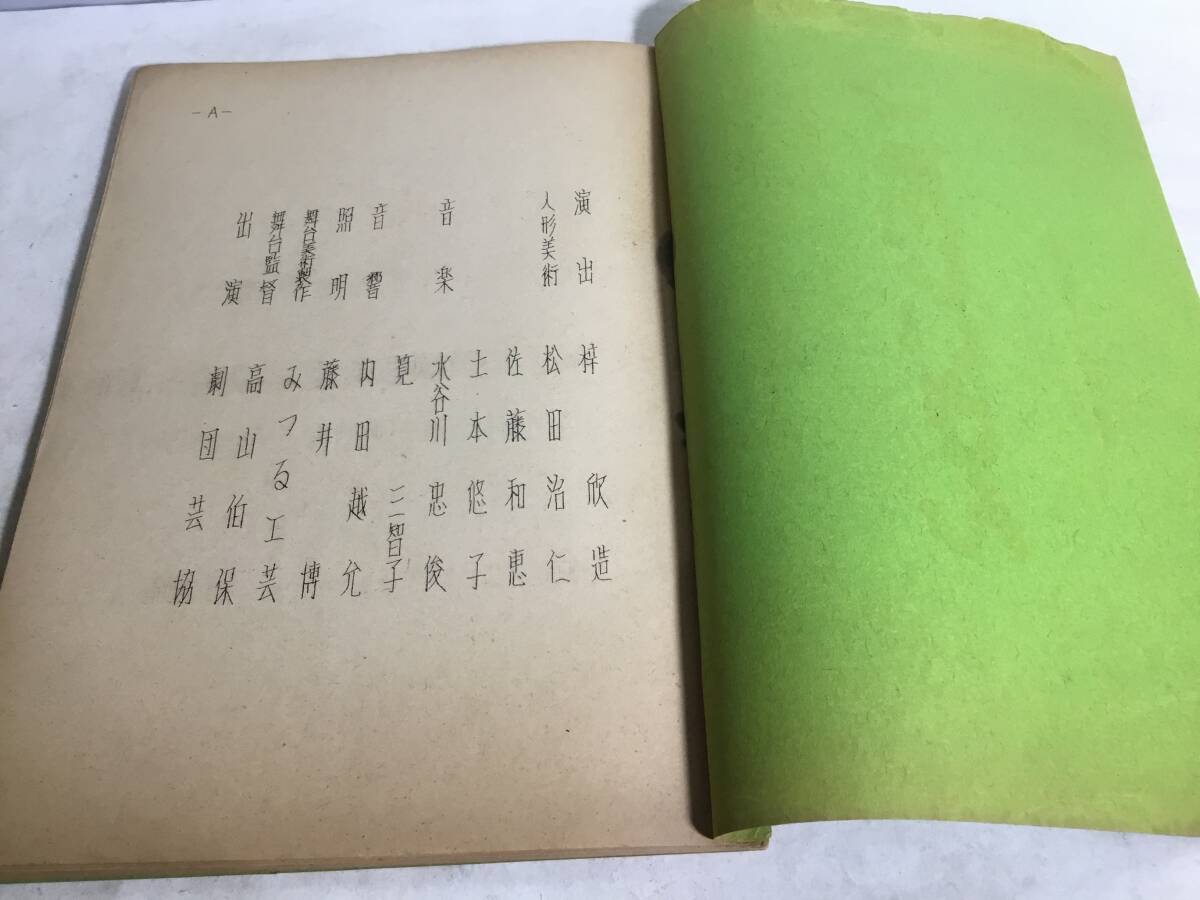 -A-
演出 梓 欣造
人形美術 松田治仁
佐藤和恵
土本悠子
音楽 水谷川忠俊
筧 三智子
音響 内田越允
照明 藤井 博
舞台美術製作 みつる工芸
舞台監督 高山伯保
出演 劇団芸協